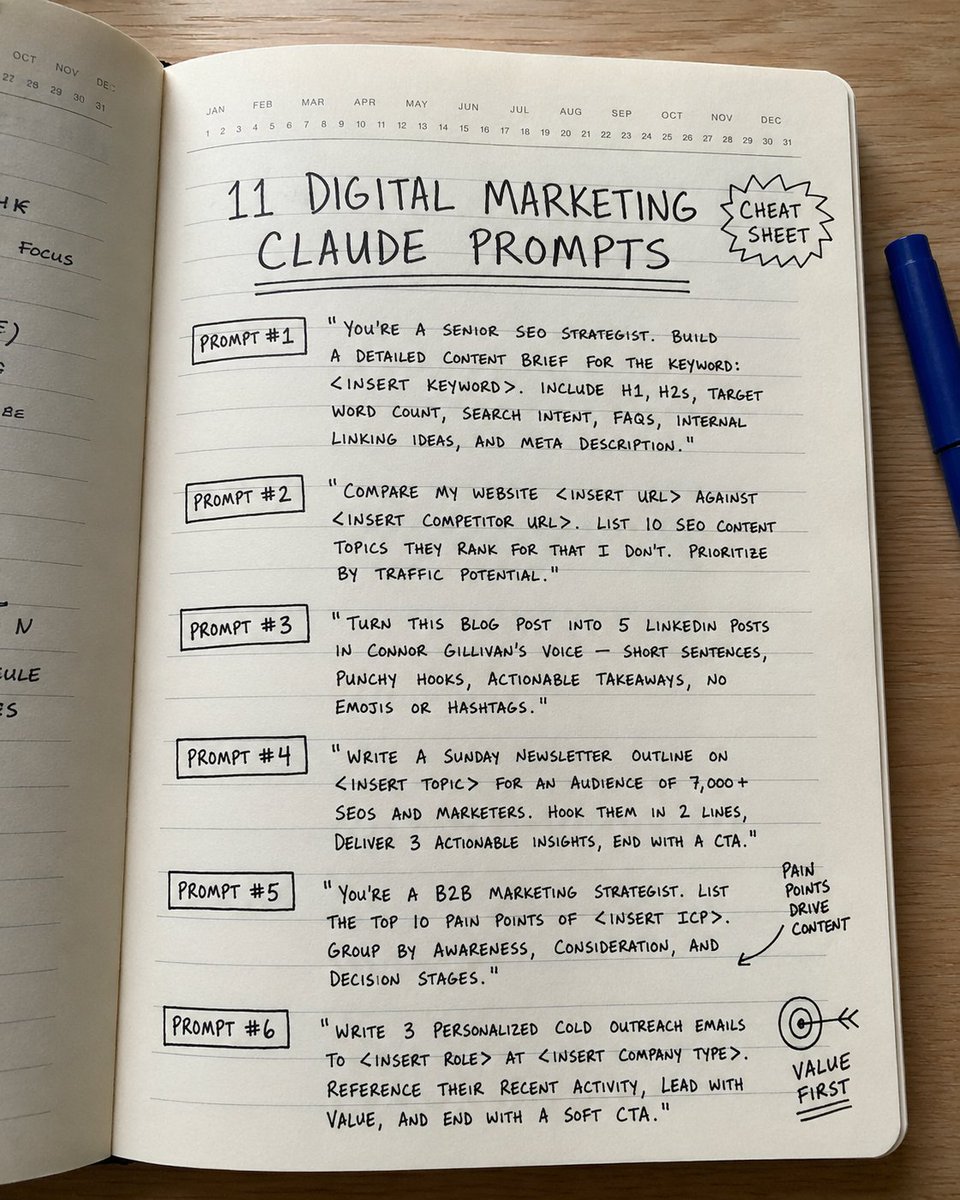 OCT NOV DEC
27 28 29 30 31
HK
FOCUS
E)
G
BE
N
ULE
ES
JAN FEB MAR APR MAY JUN JUL AUG SEP OCT NOV DEC
1 2 3 4 5 6 7 8 9 10 11 12 13 14 15 16 17 18 19 20 21 22 23 24 25 26 27 28 29 30 31
11 DIGITAL MARKETING
CLAUDE PROMPTS
CHEAT
SHEET
PROMPT #1
"YOU'RE A SENIOR SEO STRATEGIST. BUILD
A DETAILED CONTENT BRIEF FOR THE KEYWORD:
<INSERT KEYWORD>. INCLUDE H1, H2S, TARGET
WORD COUNT, SEARCH INTENT, FAQS, INTERNAL
LINKING IDEAS, AND META DESCRIPTION."
PROMPT #2
"COMPARE MY WEBSITE <INSERT URL> AGAINST
<INSERT COMPETITOR URL>. LIST 10 SEO CONTENT
TOPICS THEY RANK FOR THAT I DON'T. PRIORITIZE
BY TRAFFIC POTENTIAL."
PROMPT #3
"TURN THIS BLOG POST INTO 5 LINKEDIN POSTS
IN CONNOR GILLIVAN'S VOICE — SHORT SENTENCES,
PUNCHY HOOKS, ACTIONABLE TAKEAWAYS, NO
EMOJIS OR HASHTAGS."
PROMPT #4
"WRITE A SUNDAY NEWSLETTER OUTLINE ON
<INSERT TOPIC> FOR AN AUDIENCE OF 7,000+
SEOS AND MARKETERS. HOOK THEM IN 2 LINES,
DELIVER 3 ACTIONABLE INSIGHTS, END WITH A CTA."
PROMPT #5
"YOU'RE A B2B MARKETING STRATEGIST. LIST
THE TOP 10 PAIN POINTS OF <INSERT ICP>.
GROUP BY AWARENESS, CONSIDERATION, AND
DECISION STAGES."
PAIN
POINTS
DRIVE
CONTENT
PROMPT #6
"WRITE 3 PERSONALIZED COLD OUTREACH EMAILS
TO <INSERT ROLE> AT <INSERT COMPANY TYPE>.
REFERENCE THEIR RECENT ACTIVITY, LEAD WITH
VALUE, AND END WITH A SOFT CTA."
VALUE
FIRST